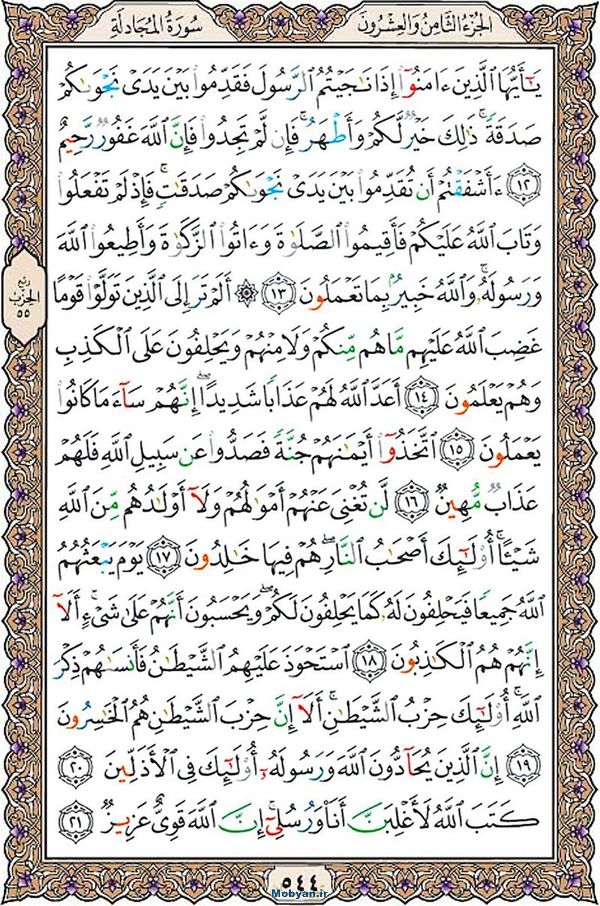 الجُزءُ الثَّامِنُ وَالعِشرُونَ
سُورَةُ المُجَادلَةِ
يَٰٓأَيُّهَا ٱلَّذِينَ ءَامَنُوٓاْ إِذَا نَٰجَيۡتُمُ ٱلرَّسُولَ فَقَدِّمُواْ بَيۡنَ يَدَىۡ نَجۡوَىٰكُمۡ
صَدَقَةٗۚ ذَٰلِكَ خَيۡرٞ لَّكُمۡ وَأَطۡهَرُۚ فَإِن لَّمۡ تَجِدُواْ فَإِنَّ ٱللَّهَ غَفُورٞ رَّحِيمٌ
١٢ ءَأَشۡفَقۡتُمۡ أَن تُقَدِّمُواْ بَيۡنَ يَدَىۡ نَجۡوَىٰكُمۡ صَدَقَٰتٖۚ فَإِذۡ لَمۡ تَفۡعَلُواْ
وَتَابَ ٱللَّهُ عَلَيۡكُمۡ فَأَقِيمُواْ ٱلصَّلَوٰةَ وَءَاتُواْ ٱلزَّكَوٰةَ وَأَطِيعُواْ ٱللَّهَ
وَرَسُولَهُۥۚ وَٱللَّهُ خَبِيرُۢ بِمَا تَعۡمَلُونَ ١٣ ۞ أَلَمۡ تَرَ إِلَى ٱلَّذِينَ تَوَلَّوۡاْ قَوۡمًا
غَضِبَ ٱللَّهُ عَلَيۡهِم مَّا هُم مِّنكُمۡ وَلَا مِنۡهُمۡ وَيَحۡلِفُونَ عَلَى ٱلۡكَذِبِ
وَهُمۡ يَعۡلَمُونَ ١٤ أَعَدَّ ٱللَّهُ لَهُمۡ عَذَابٗا شَدِيدًاۖ إِنَّهُمۡ سَآءَ مَا كَانُواْ
يَعۡمَلُونَ ١٥ ٱتَّخَذُوٓاْ أَيۡمَٰنَهُمۡ جُنَّةٗ فَصَدُّواْ عَن سَبِيلِ ٱللَّهِ فَلَهُمۡ
عَذَابٞ مُّهِينٞ ١٦ لَّن تُغۡنِىَ عَنۡهُمۡ أَمۡوَٰلُهُمۡ وَلَآ أَوۡلَٰدُهُم مِّنَ ٱللَّهِ
شَيۡـًٔاۚ أُوْلَٰٓئِكَ أَصۡحَٰبُ ٱلنَّارِۖ هُمۡ فِيهَا خَٰلِدُونَ ١٧ يَوۡمَ يَبۡعَثُهُمُ
ٱللَّهُ جَمِيعٗا فَيَحۡلِفُونَ لَهُۥ كَمَا يَحۡلِفُونَ لَكُمۡۖ وَيَحۡسَبُونَ أَنَّهُمۡ عَلَىٰ شَىۡءٍۚ أَلَآ
إِنَّهُمۡ هُمُ ٱلۡكَٰذِبُونَ ١٨ ٱسۡتَحۡوَذَ عَلَيۡهِمُ ٱلشَّيۡطَٰنُ فَأَنسَىٰهُمۡ ذِكۡرَ
ٱللَّهِۚ أُوْلَٰٓئِكَ حِزۡبُ ٱلشَّيۡطَٰنِۚ أَلَآ إِنَّ حِزۡبَ ٱلشَّيۡطَٰنِ هُمُ ٱلۡخَٰسِرُونَ
١٩ إِنَّ ٱلَّذِينَ يُحَآدُّونَ ٱللَّهَ وَرَسُولَهُۥٓ أُوْلَٰٓئِكَ فِى ٱلۡأَذَلِّينَ ٢٠
كَتَبَ ٱللَّهُ لَأَغۡلِبَنَّ أَنَا۠ وَرُسُلِىٓۚ إِنَّ ٱللَّهَ قَوِىٌّ عَزِيزٞ ٢١
ربع
الحزب
٥٥
٥٤٤
Mobyan.ir